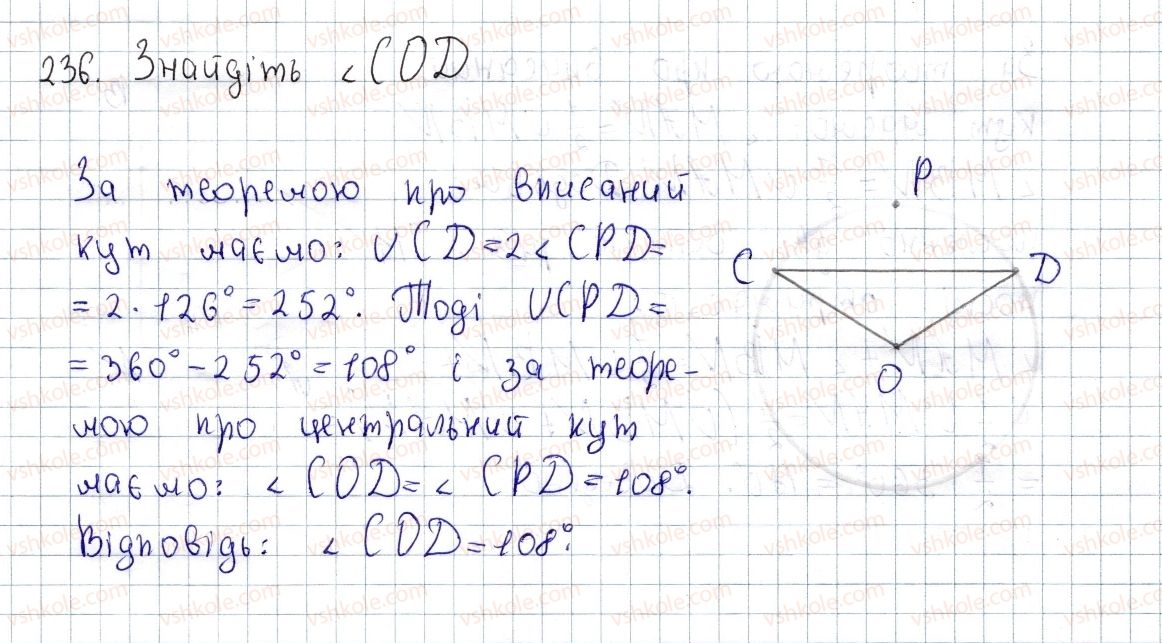 236. Знайдіть <COD
За теоремою про вписаний
кут маємо: ∪CD=2<CPD=
=2·126°=252°. Тоді ∪CPD=
=360°-252°=108° і за теоре-
мою про центральний кут
маємо: <COD=< CPD=108°.
Відповідь: <COD=108°.
P
C
D
O
vshkole.com